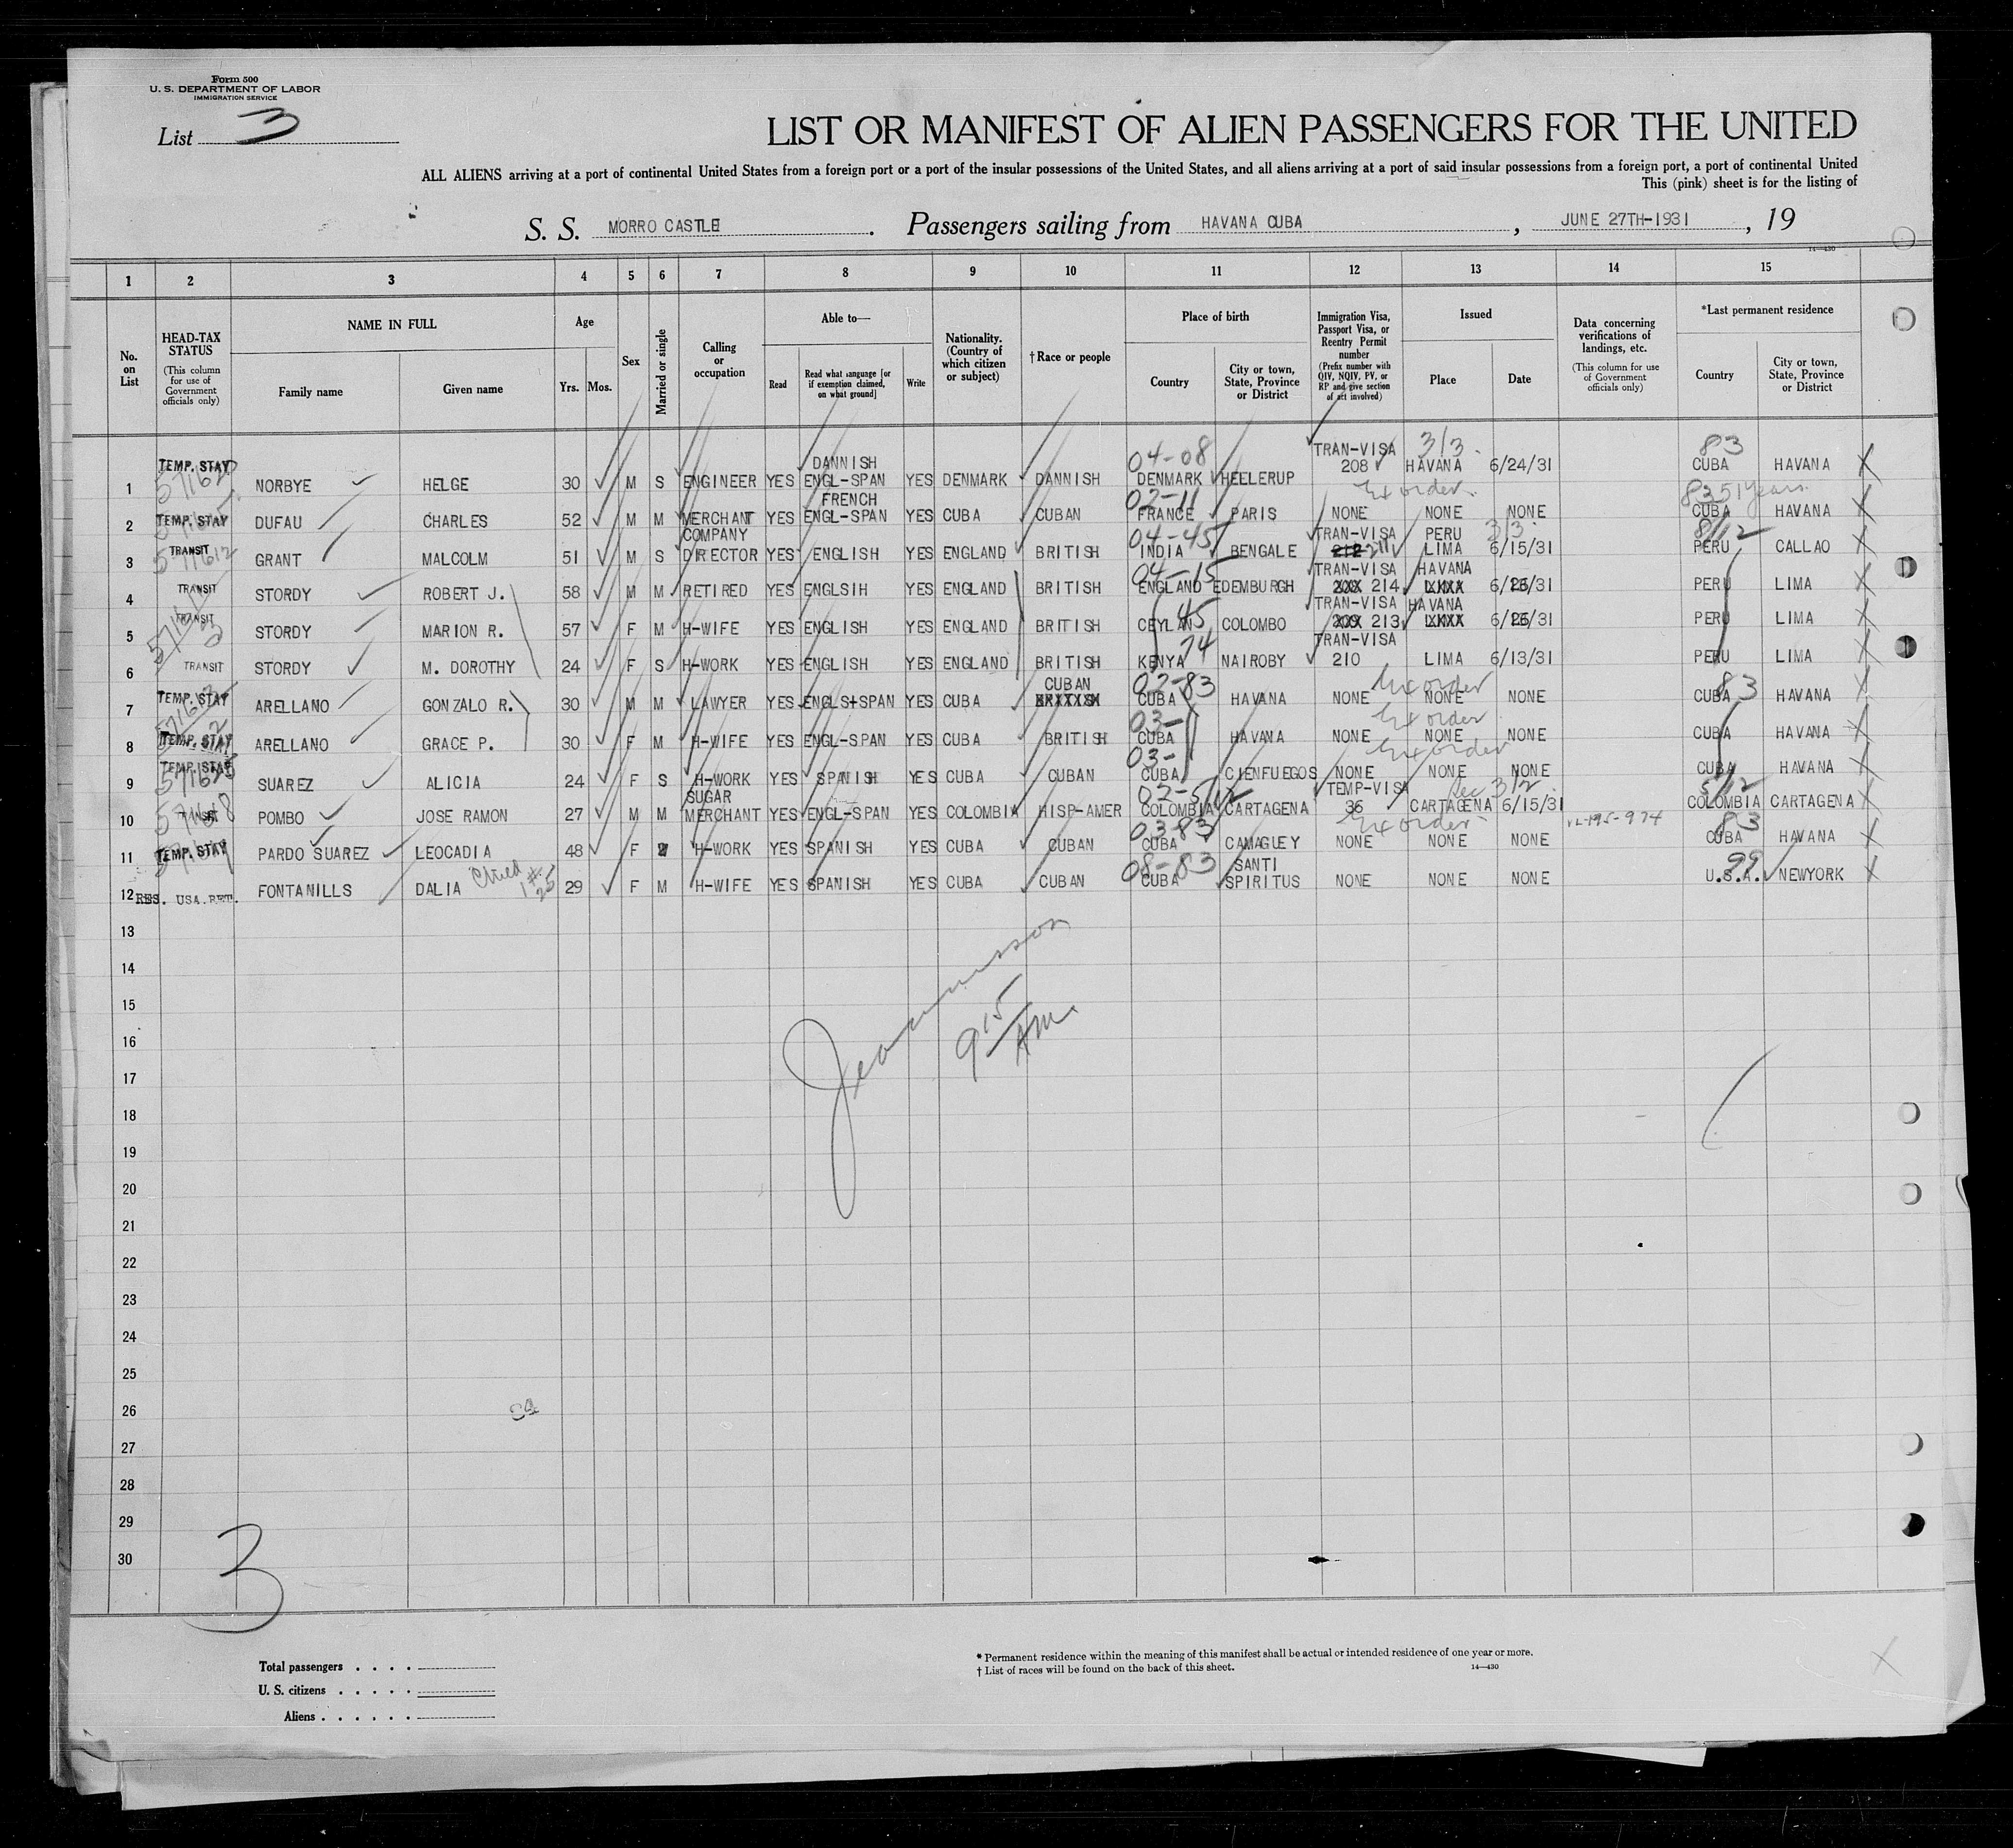 Form 500
U. S. DEPARTMENT OF LABOR
IMMIGRATION SERVICE
List 3
LIST OR MANIFEST OF ALIEN PASSENGERS FOR THE UNITED
ALL ALIENS arriving at a port of continental United States from a foreign port or a port of the insular possessions of the United States, and all aliens arriving at a port of said insular possessions from a foreign port, a port of continental United
This (pink) sheet is for the listing of
S. S. MORRO CASTLE. Passengers sailing from HAVANA CUBA, JUNE 27TH-1931, 19
14—430
1 2 3 4 5 6 7 8 9 10 11 12 13 14 15
No. on List
HEAD-TAX STATUS (This column for use of Government officials only)
NAME IN FULL Family name Given name
Age Yrs. Mos.
Sex
Married or single
Calling or occupation
Able to— Read Read what language [or if exemption claimed, on what ground] Write
Nationality. (Country of which citizen or subject)
† Race or people
Place of birth Country City or town, State, Province or District
Immigration Visa, Passport Visa, or Reentry Permit number (Prefix number with QIV, NQIV, PV, or RP and give section of act involved)
Issued Place Date
Data concerning verifications of landings, etc. (This column for use of Government officials only)
*Last permanent residence Country City or town, State, Province or District
1 TEMP. STAY NORBYE HELGE 30 M S ENGINEER YES DANNISH ENGL-SPAN YES DENMARK DANNISH 04-08 DENMARK HELLERUP TRAN-VISA 208 313 HAVANA 6/24/31 83 CUBA HAVANA X
2 TEMP. STAY DUFAU CHARLES 52 M M MERCHANT YES FRENCH ENGL-SPAN YES CUBA CUBAN 02-11 FRANCE PARIS Ex order NONE NONE NONE 83 51 years CUBA HAVANA X
3 TRANSIT GRANT MALCOLM 51 M S COMPANY DIRECTOR YES ENGLISH YES ENGLAND BRITISH 04-45 INDIA BENGALE TRAN-VISA 212 211 PERU LIMA 313 6/15/31 8/12 PERU CALLAO X
4 TRANSIT STORDY ROBERT J. 58 M M RETIRED YES ENGLSIH YES ENGLAND BRITISH 04-15 ENGLAND EDEMBURGH TRAN-VISA 214 HAVANA 6/26/31 PERU LIMA X
5 TRANSIT STORDY MARION R. 57 F M H-WIFE YES ENGLISH YES ENGLAND BRITISH 45 CEYLAN COLOMBO TRAN-VISA 213 HAVANA 6/26/31 PERU LIMA X
6 TRANSIT STORDY M. DOROTHY 24 F S H-WORK YES ENGLISH YES ENGLAND BRITISH 74 KENYA NAIROBY TRAN-VISA 210 LIMA 6/13/31 PERU LIMA X
7 TEMP. STAY ARELLANO GONZALO R. 30 M M LAWYER YES ENGLS+SPAN YES CUBA CUBAN 02-83 CUBA HAVANA NONE Ex order NONE NONE 83 CUBA HAVANA X
8 TEMP. STAY ARELLANO GRACE P. 30 F M H-WIFE YES ENGL-SPAN YES CUBA BRITISH 03- CUBA HAVANA NONE Ex order NONE NONE CUBA HAVANA X
9 TEMP. STAY SUAREZ ALICIA 24 F S H-WORK YES SPANISH YES CUBA CUBAN 03- CUBA CIENFUEGOS NONE Ex order NONE NONE CUBA HAVANA X
10 TRANSIT POMBO JOSE RAMON 27 M M SUGAR MERCHANT YES ENGL-SPAN YES COLOMBIA HISP-AMER 02-5/12 COLOMBIA CARTAGENA TEMP-VISA 36 Sec 3/2 CARTAGENA 6/15/31 5/12 COLOMBIA CARTAGENA X
11 TEMP. STAY PARDO SUAREZ LEOCADIA 48 F H-WORK YES SPANISH YES CUBA CUBAN 03-83 CUBA CAMAGUEY Ex order NONE NONE NONE 83 CUBA HAVANA X
12 RES. USA. RET. FONTANILLS DALIA 29 F M H-WIFE YES SPANISH YES CUBA CUBAN 08-83 CUBA SANTI SPIRITUS NONE NONE NONE 99 U.S.A. NEWYORK X
13
14
15
9 15 AM
16
17
18
19
20
21
22
23
24
25
26
27
28
29
30
3
Total passengers . . . .
U. S. citizens . . . . .
Aliens . . . . . .
* Permanent residence within the meaning of this manifest shall be actual or intended residence of one year or more.
† List of races will be found on the back of this sheet.
14—430
X